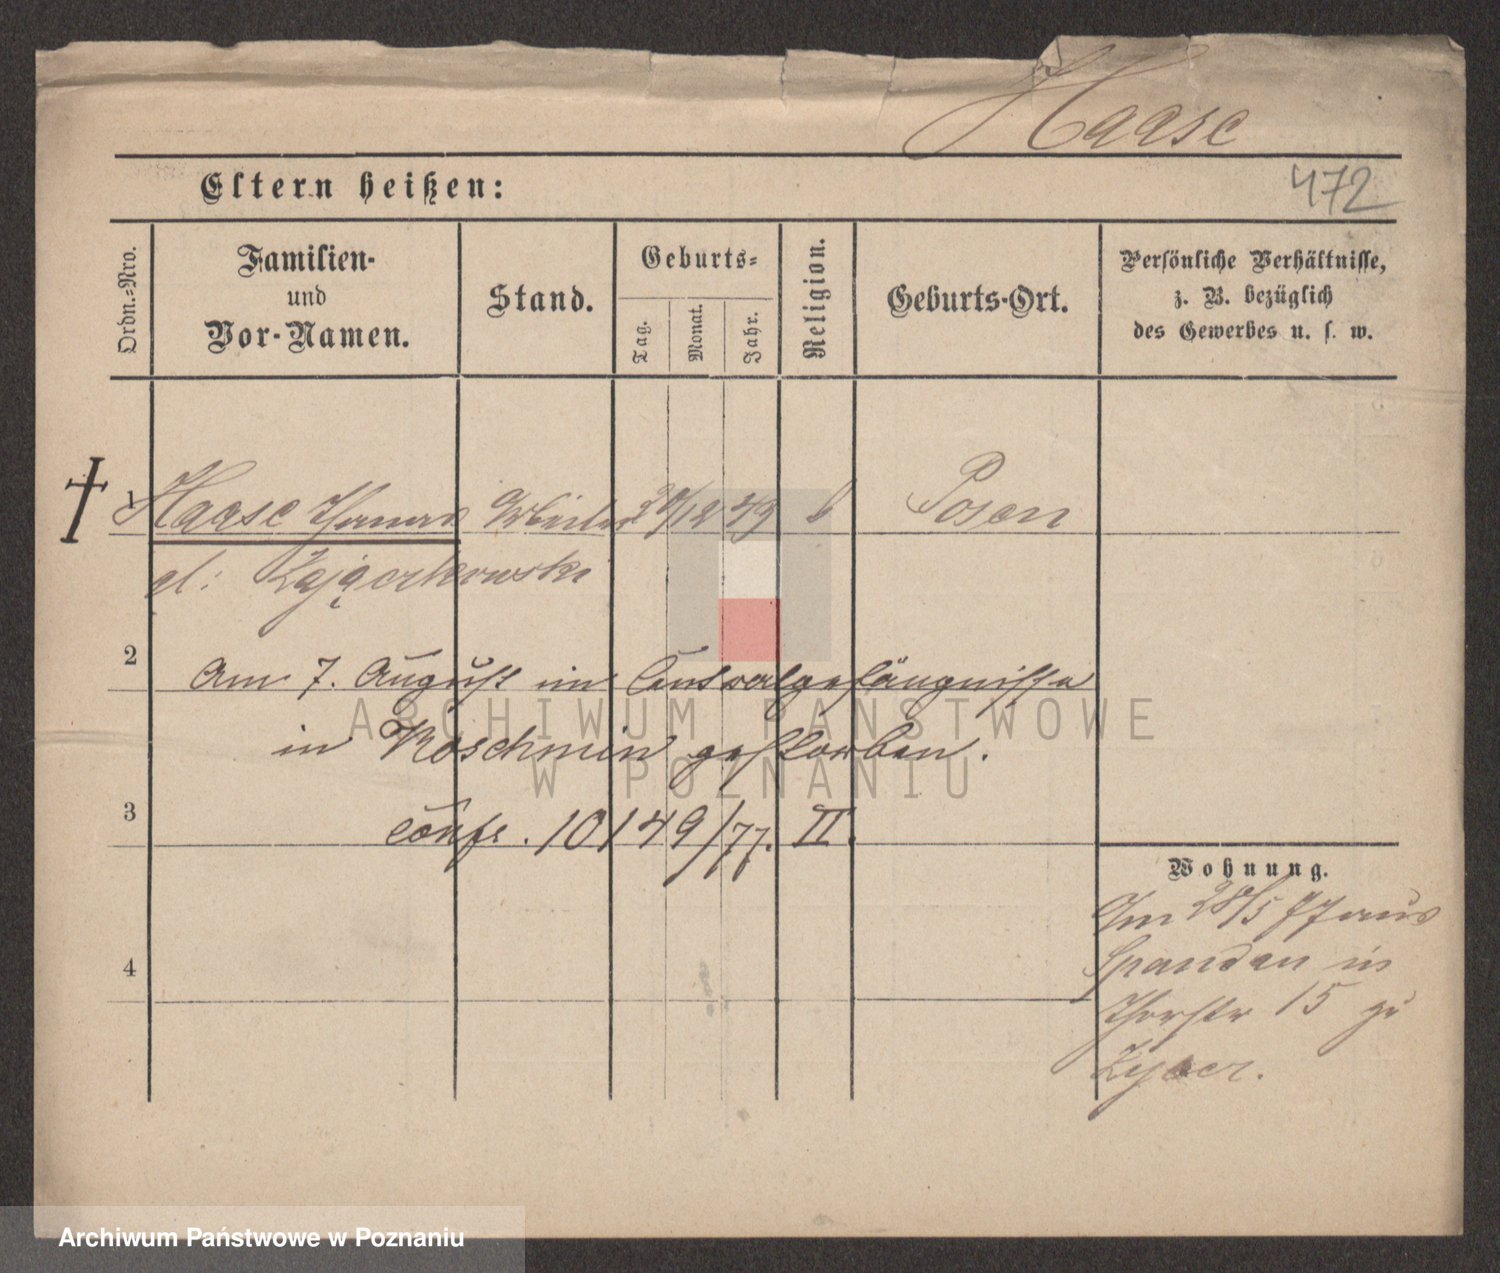 Haase
472
Eltern heißen:
Ordn.-Nro.
Familien-
und
Vor-Namen.
Stand.
Geburts-
Tag.
Monat.
Jahr.
Religion.
Geburts-Ort.
Persönliche Verhältnisse,
z. B. bezüglich
des Gewerbes u. s. w.
1 Haase Arbeiter /12 49 Posen
2
Am 7. August im Centralgefängnisse
in Koschmin gestorben.
3
Confr. 10149/77. II.
4
Wohnung.
Am 28/5 77 aus
Spandau in
Thorstr 15 zu
ARCHIWUM PAŃSTWOWE
W POZNANIU
Archiwum Państwowe w Poznaniu